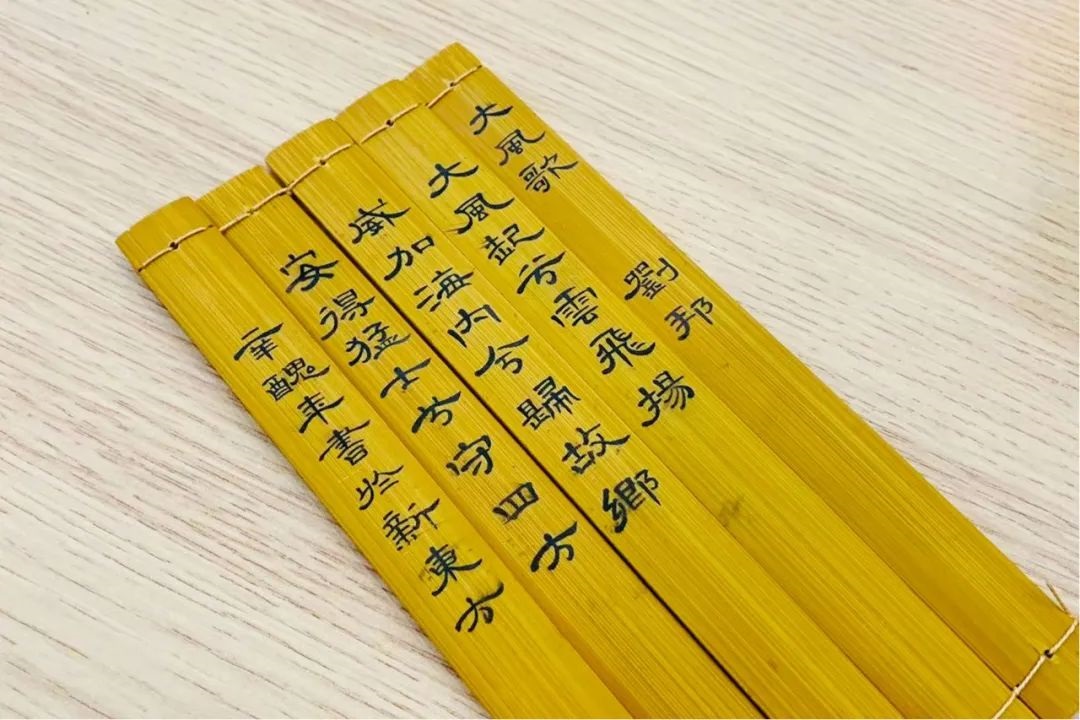 大風歌 劉邦
大風起兮雲飛揚
威加海内兮歸故鄉
安得猛士兮守四方
辛醜年書於新東方